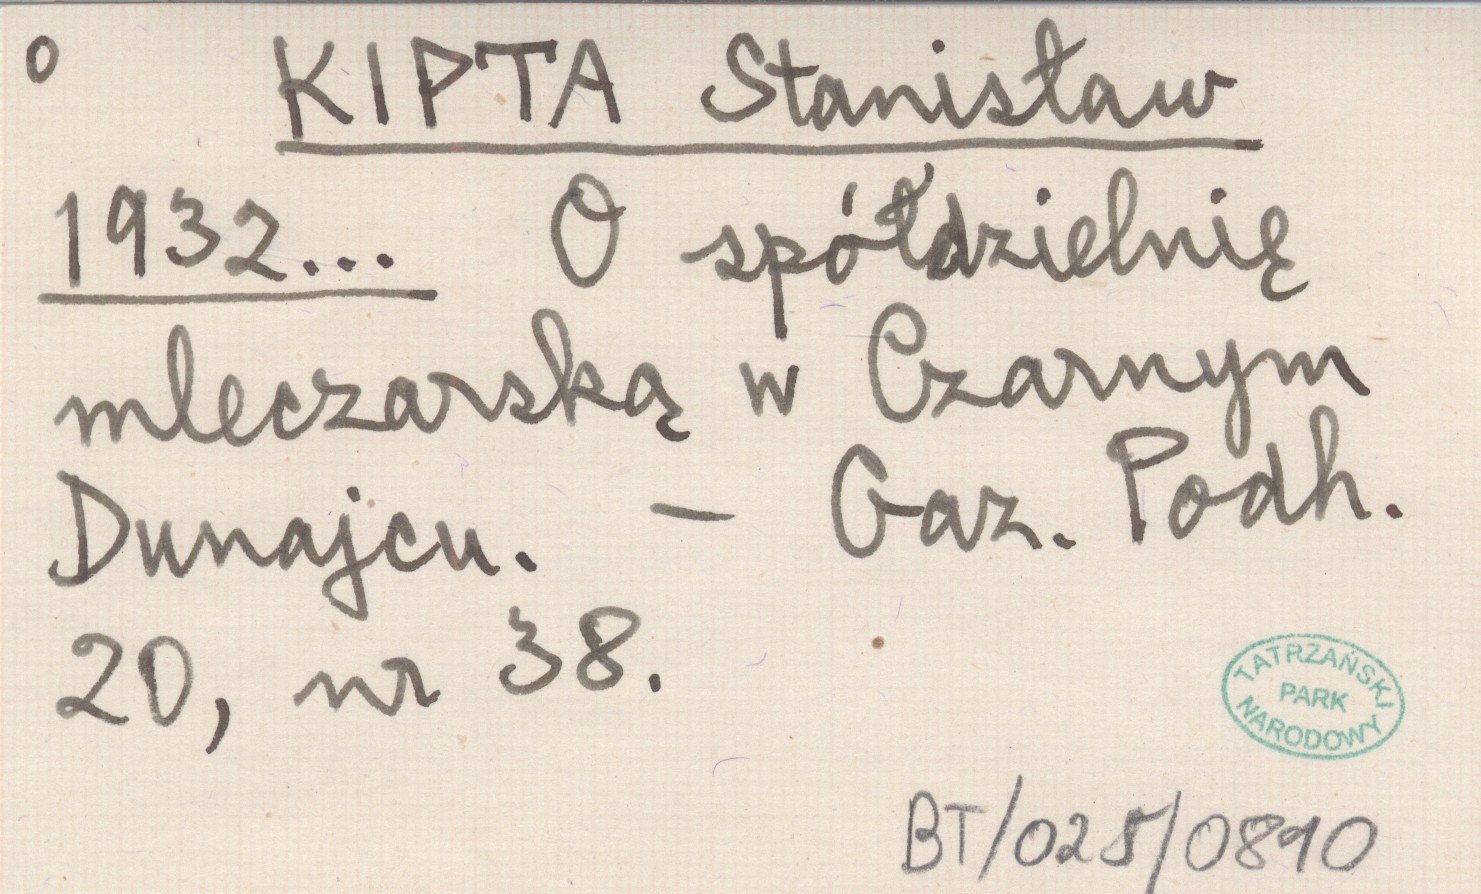 o KIPTA Stanisław
1932... O spółdzielnię
mleczarską w Czarnym
Dunajcu. – Gaz. Podh.
20, nr 38.
TATRZAŃSKI
PARK
NARODOWY
BT/025/0890